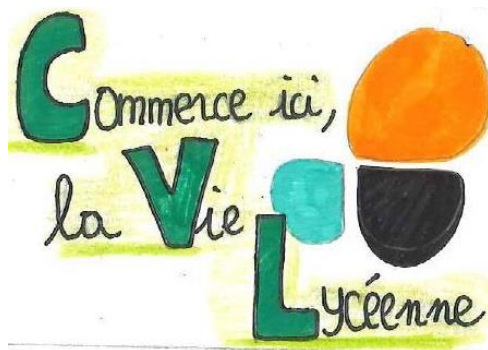 Commerce ici,
la Vie
Lycéenne